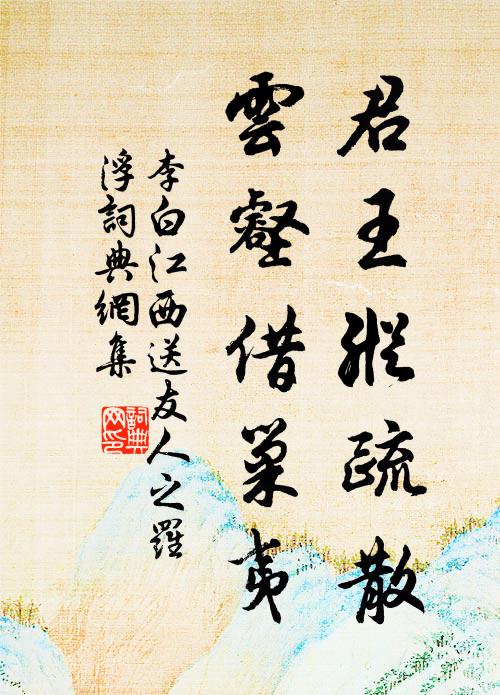 君王縱疏散
雲壑借巢夷
李白江西送友人之羅
浮詞典網集
詞典
网印